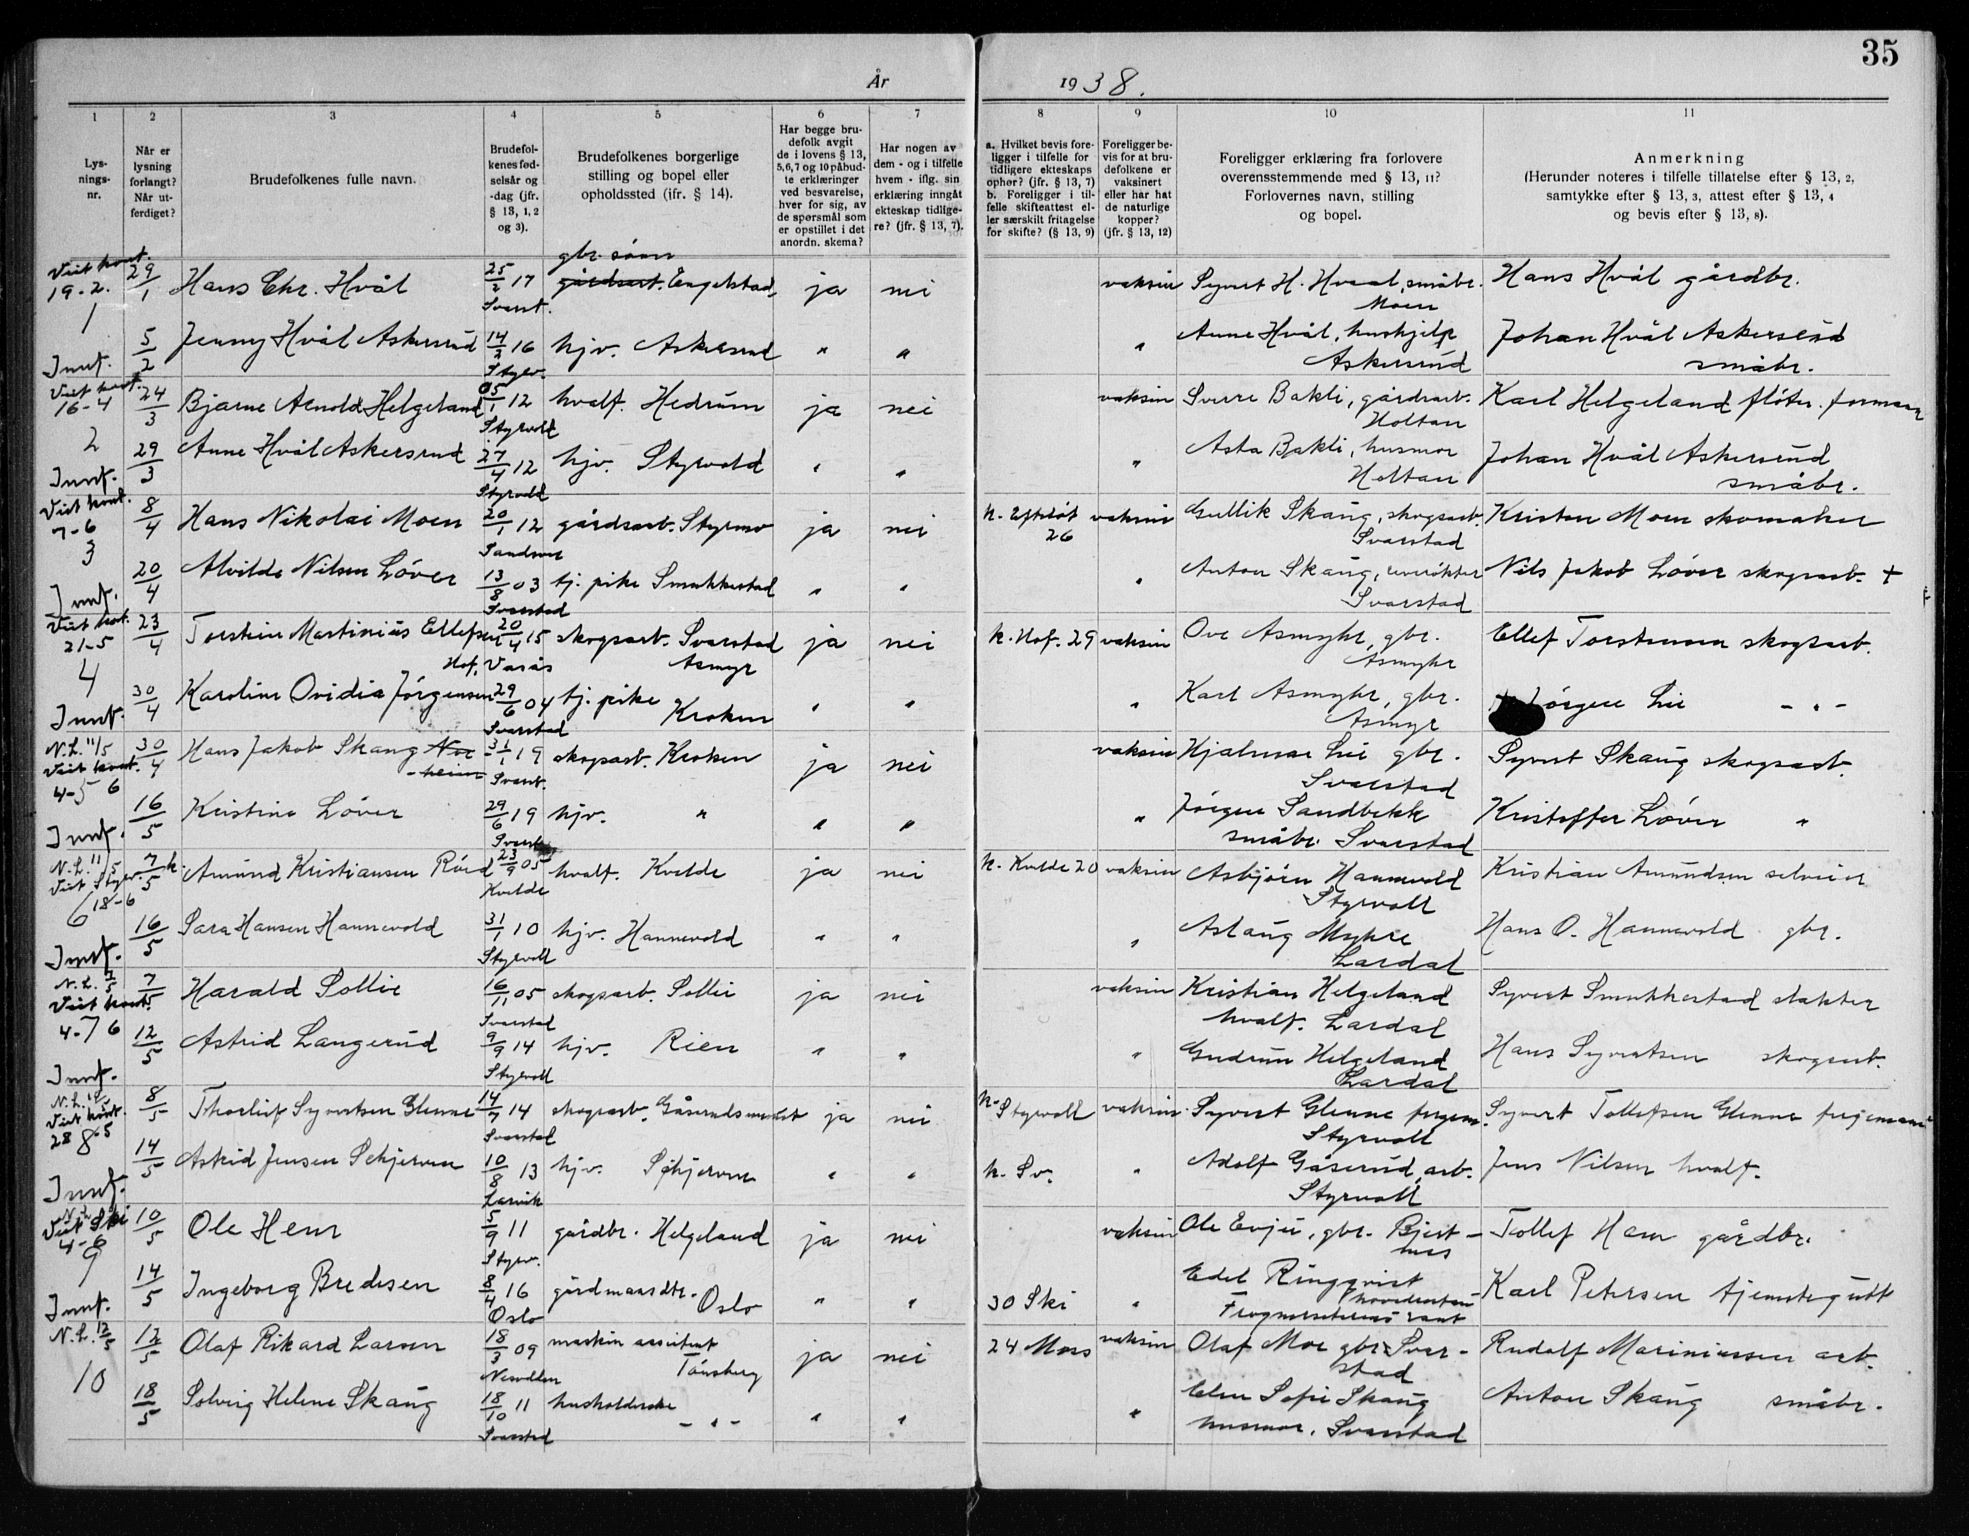 35
År 1938.
1 2 3 4 5 6 7 8 9 10 11
Lys-
nings-
nr.
Når er
lysning
forlangt?
Når ut-
ferdiget?
Brudefolkenes fulle navn.
Brudefol-
kenes fød-
selsår og
-dag (jfr.
§ 13, 1, 2
og 3).
Brudefolkenes borgerlige
stilling og bopel eller
opholdssted (ifr. § 14).
Har begge bru-
defolk avgit
de i lovens § 13,
5,6,7 og 10 påbud-
te erklæringer
ved besvarelse,
hver for sig, av
de spørsmål som
er opstillet i det
anordn. skema?
Har nogen av
dem - og i tilfelle
hvem - iflg. sin
erklæring inngåt
ekteskap tidlige-
re? (jfr. § 13, 7).
a. Hvilket bevis fore-
ligger i tilfelle for
tidligere ekteskaps
ophør? (jfr. § 13, 7)
b. Foreligger i til-
felle skifteattest el-
ler særskilt fritagelse
for skifte? (§ 13, 9)
Foreligger be-
vis for at bru-
defolkene er
vaksinert
eller har hat
de naturlige
kopper?
(jfr. § 13, 12)
Foreligger erklæring fra forlovere
overensstemmende med § 13, 11?
Forlovernes navn, stilling
og bopel.
Anmerkning
(Herunder noteres i tilfelle tillatelse efter § 13, 2,
samtykke efter § 13, 3, attest efter § 13, 4
og bevis efter § 13, 8).
gbr. sønn
19-2. 29/1 Hans Chr. Hvål 25/2 17 gårdsarb. Engelstad ja nei vaksin Syvert H. Hvaal, småbr. Hans Hvål gårdbr.
1 Svarst. Moen
5/2 Jenny Hvål Askersrud 14/2 16 hjv. Askersrud " " " Anne Hvål, hushjelp Johan Hvål Askersrud
Innf. Styrv. Askersrud småbr.
16-4 24/3 Bjarne Arnold Helgeland 05/1 12 hvalf. Hedrum ja nei vaksin Sverre Bakli, gårdsarb. Karl Helgeland fløter. formann
2 Styrvoll Holtan
29/3 Anne Hvål Askersrud 27/4 12 hjv. Styrvold " " " Asta Bakli, husmor Johan Hvål Askersrud
Innf. Styrvold Holtan småbr.
7-6 8/4 Hans Nikolai Moen 20/1 12 gårdsarb. Styrmo ja nei k. Efteløt vaksin Gullik Skaug, skogsarb. Kristen Moen skomaker
3 Sandsvær 26 Svarstad
20/4 Alvilde Nilsen Løver 13/8 03 tj. pike Smukkestad " " " Anton Skaug, Nils Jakob Løver skogsarb. +
Innf. Svarstad Svarstad
21-5 23/4 Torstein Martinius Ellefsen 20/4 15 skogsarb. Svarstad ja nei k. Hof. 29 vaksin Ove Asmyhr, gbr. Ellef Torstensen skogsarb.
4 Hof, Vasås Asmyr Asmyhr
30/4 Karoline Ovidia Jørgensen 29/6 04 tj. pike " " " Karl Asmyhr, gbr. Jørgen Lie - " -
Innf. Svarstad Kroken Asmyr
N.L. 11/5 30/4 Hans Jakob Skaug 31/1 19 skogsarb. Kroken ja nei vaksin Hjalmar Lie gbr. Syvert Skaug skogsarb.
4-6 5 Svarst. Svarstad
16/5 Kristine Løver 29/6 19 hjv. " " " " Jørgen Sandbekk Kristoffer Løver "
Innf. Svarst. småbr. Svarstad
N.L. 11/5 7/5 Amund Kristiansen 23/9 05 hvalf. Kvelde ja nei k. Kvelde 20 vaksin Asbjørn Hannevold Kristian Amundsen selveier
6 18-6 Kvelde Styrvoll
16/5 Sara Hansen Hannevold 31/1 10 hjv. Hannevold " " " Aslaug Myhre Hans O. Hannevold gbr.
Innf. Styrvoll Lardal
N.L. 7/5 7/5 Harald Sollie 16/11 05 skogsarb. Sollie ja nei vaksin Kristian Helgeland Syvert Smukkestad slakter
4-6 7 Svarstad hvalf. Lardal
12/5 Astrid Langerud 9/9 14 hjv. Rien " " " Gudrun Helgeland Hans Syvertsen skogsarb.
Innf. Styrvoll Lardal
N.L. 8/5 Thorleif Syvertsen Glenne 14/7 14 skogsarb. ja nei k. Styrvoll vaksin Syvert Glenne fergem. Syvert Tollefsen Glenne fergemann
28-5 8 Svarstad Styrvoll
14/5 Astrid Jensen Schjerven 10/8 13 hjv. Schjerven " " k. Sv. " Adolf Gåserud, arb. Jens Nilsen hvalf.
Innf. Larvik Styrvoll
Ski 4-6 10/5 Ole Hem 5/9 11 gårdbr. Helgeland ja nei vaksin Ole Evju, gbr. Bjerk- Tollef Hem gårdbr.
9 Styrv. nes
14/5 Ingeborg Bredesen 8/4 16 gårdmannsdtr. Oslo " " 30 Ski " Edel Ringqvist Karl Petersen tjenstegutt
Innf. Oslo Frognerseteren
N.L. 12/5 12/5 Olaf Rikard Larsen 18/3 09 maskin assistent ja nei 24 Moss vaksin Olaf Moe gbr. Svar- Rudolf Mariniussen arb.
10 Tønsberg stad
18/5 Solveig Helene Skaug 18/10 11 husholderske - " - " " " Elen Sofie Skaug Anton Skaug småbr.
Svarstad husmor. Svarstad